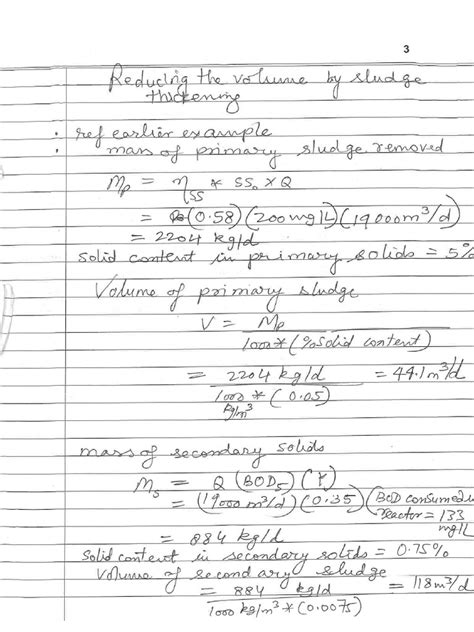 3
Reducing the volume by sludge
thickening
: ref earlier example
• mass of primary sludge removed
Mp = ηss * SS₀ × Q
= (0.58)(200 mg/L)(19000 m³/d)
= 2204 kg/d
solid content in primary solids = 5%
Volume of primary sludge
V = Mp / 1000 * (% solid content)
= 2204 kg/d / 1000 kg/m³ * (0.05) = 44.1 m³/d
mass of secondary solids
Ms = Q (BOD₅) (Y)
= (19000 m³/d) (0.35) (BOD consumed in
reactor = 133
mg/L
= 884 kg/d
Solid content in secondary solids = 0.75%
Volume of secondary sludge
= 884 kg/d / 1000 kg/m³ * (0.0075) = 118 m³/d